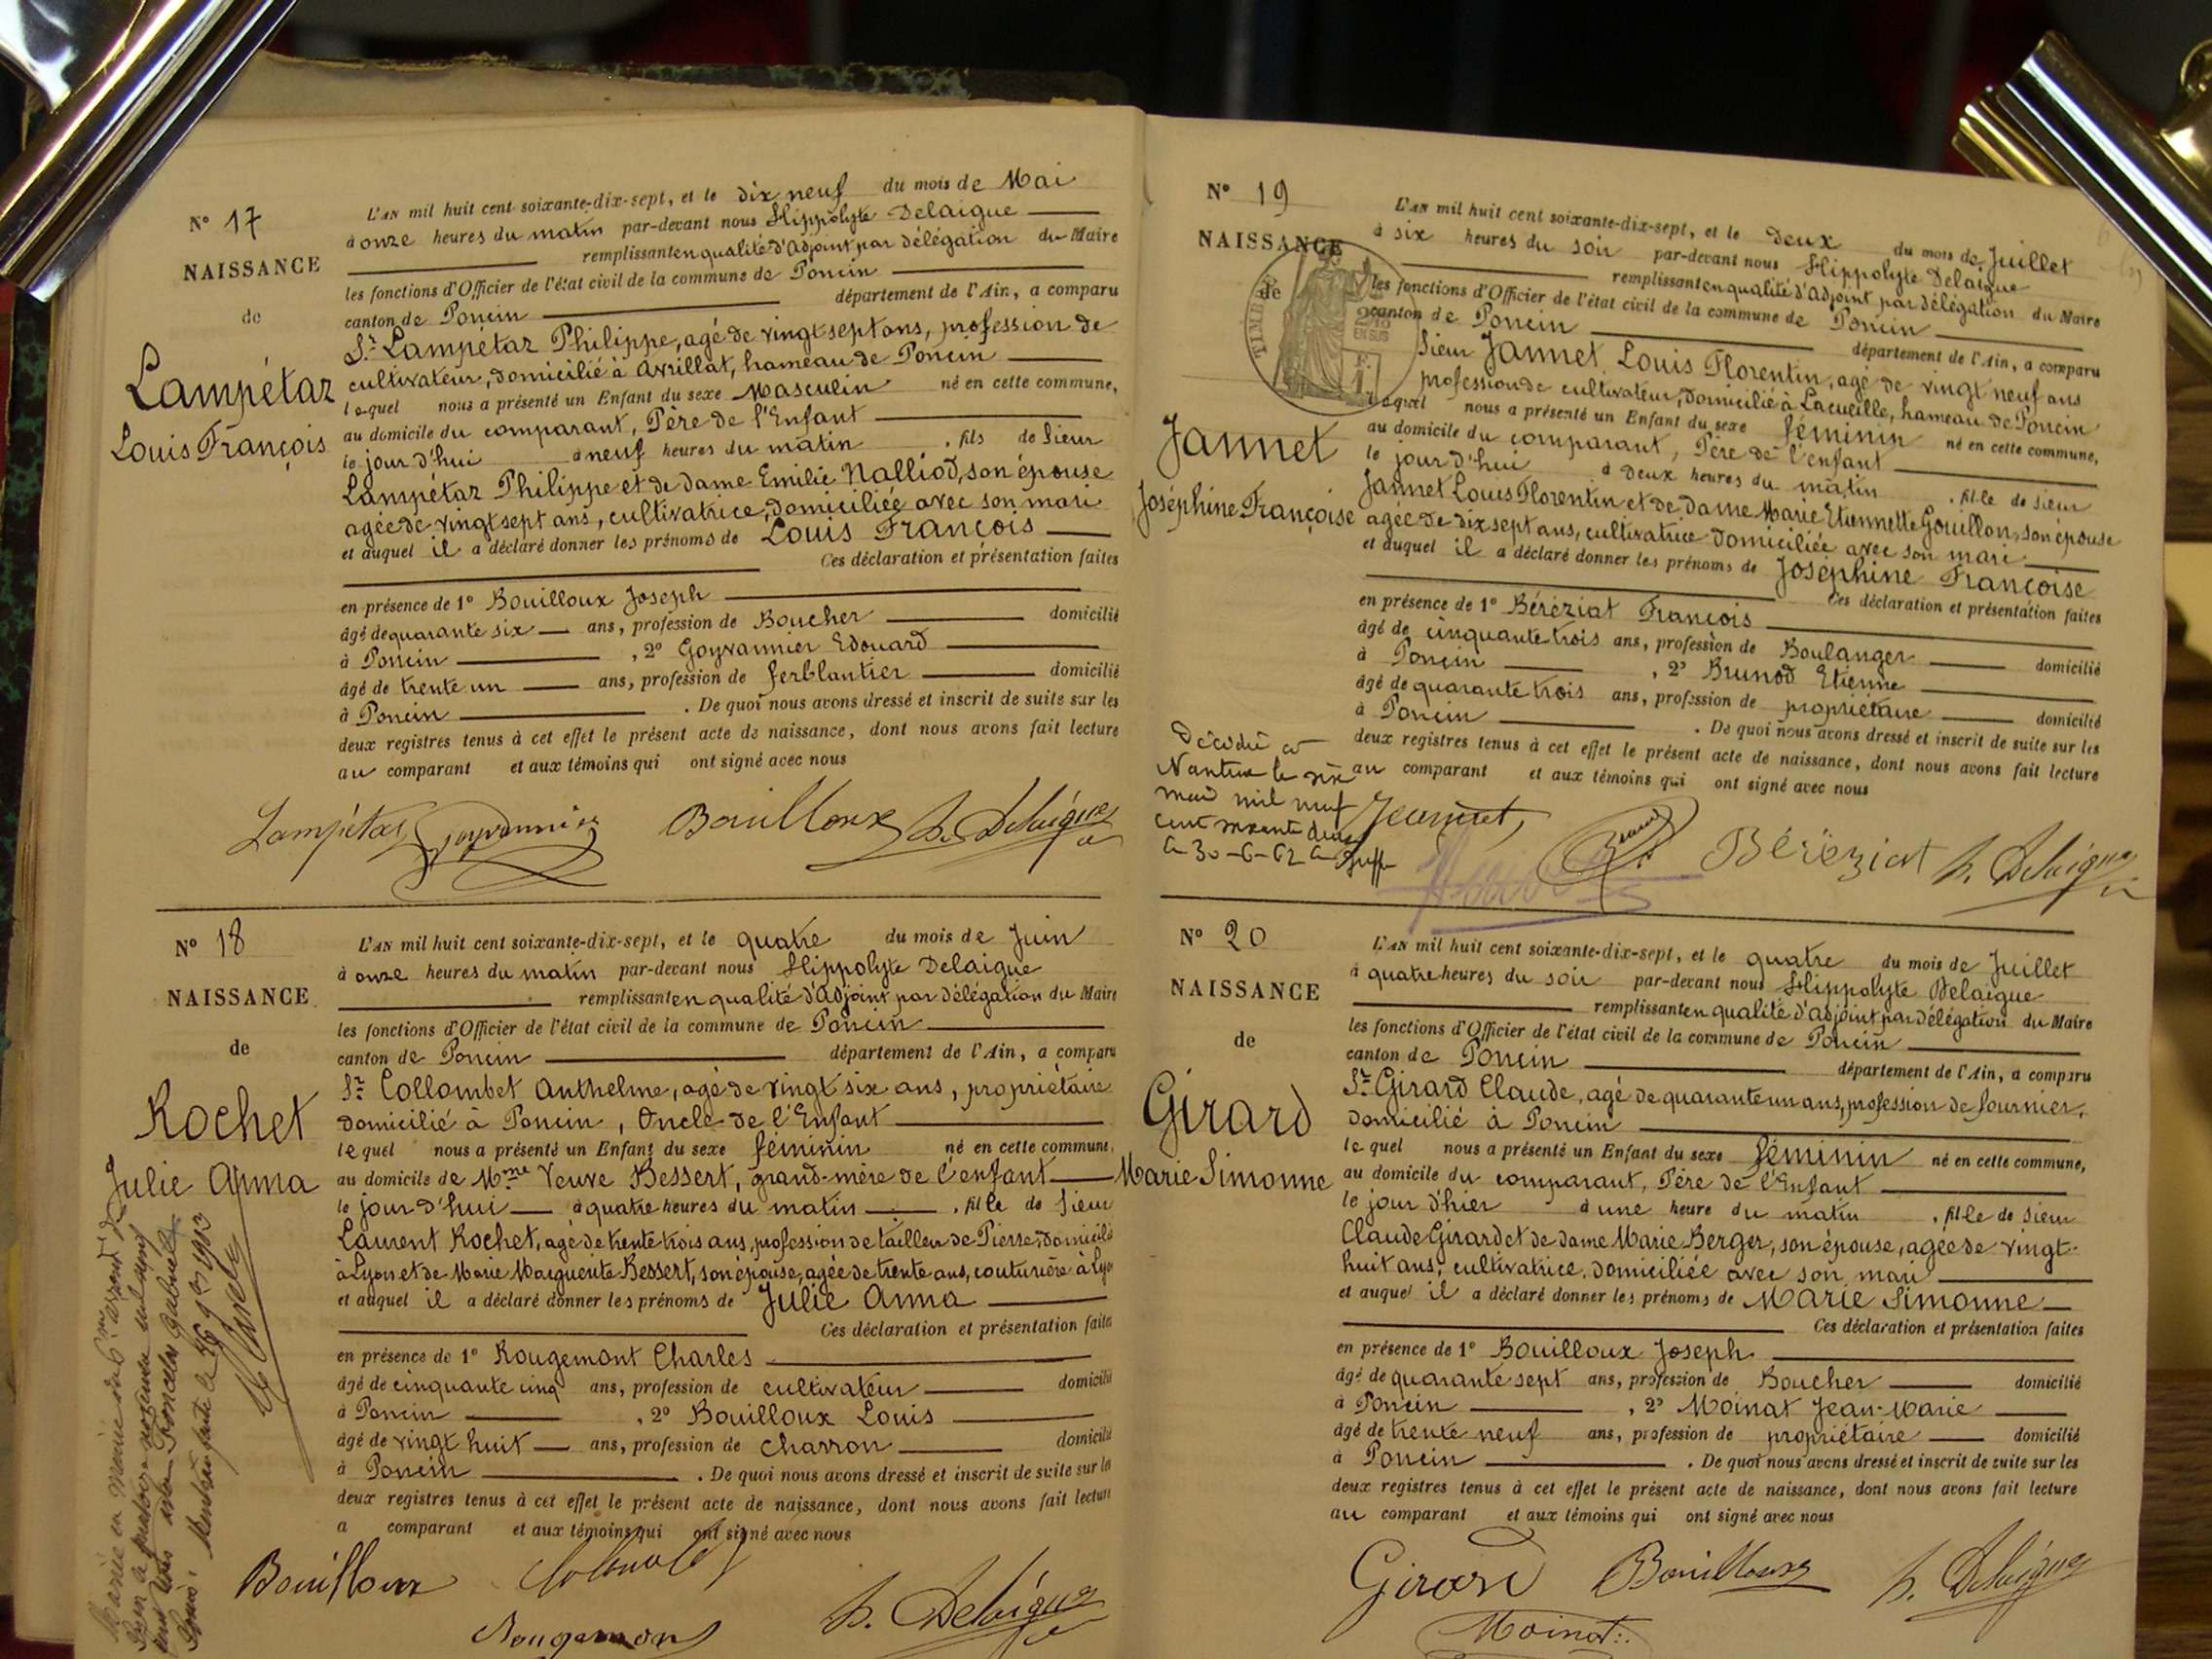 N° 17
NAISSANCE
de
Lampétaz
Louis François
L'AN mil huit cent soixante-dix-sept, et le dix neuf du mois de Mai
à onze heures du matin par-devant nous Hippolyte Delaigue
remplissant en qualité d'Adjoint par délégation du Maire
les fonctions d'Officier de l'état civil de la commune de Poncin
canton de Poncin département de l'Ain, a comparu
Sr. Lampétaz Philippe, agé de vingt sept ans, profession de
cultivateur, domicilié à Avrillat, hameau de Poncin
lequel nous a présenté un Enfant du sexe Masculin né en cette commune,
au domicile du comparant, Père de l'Enfant
le jour d'hui à neuf heures du matin , fils de Sieur
Lampétaz Philippe et de dame Emilie Nalliod, son épouse
agée de vingt sept ans, cultivatrice, domiciliée avec son mari
et auquel il a déclaré donner les prénoms de Louis François
Ces déclaration et présentation faites
en présence de 1° Bouilloux Joseph
âgé de quarante six ans, profession de Boucher domicilié
à Poncin , 2° Goyvannier Edouard
âgé de trente un ans, profession de ferblantier domicilié
à Poncin . De quoi nous avons dressé et inscrit de suite sur les
deux registres tenus à cet effet le présent acte de naissance, dont nous avons fait lecture
au comparant et aux témoins qui ont signé avec nous
Lampétaz Goyvannier Bouilloux h. Delaigue
N° 18
NAISSANCE
de
Rochet
Julie Anna
L'AN mil huit cent soixante-dix-sept, et le quatre du mois de Juin
à onze heures du matin par-devant nous Hippolyte Delaigue
remplissant en qualité d'Adjoint par délégation du Maire
les fonctions d'Officier de l'état civil de la commune de Poncin
canton de Poncin département de l'Ain, a comparu
Sr. Collombet Anthelme, agé de vingt six ans, propriétaire
domicilié à Poncin, Oncle de l'Enfant
lequel nous a présenté un Enfant du sexe féminin né en cette commune,
au domicile de Mme Veuve Bessert, grand-mère de l'enfant
le jour d'hui à quatre heures du matin , fille de Sieur
Laurent Rochet, agé de trente trois ans, profession de tailleur de Pierre, domicilié
à Lyon et de Marie Marguerite Bessert, son épouse, agée de trente ans, couturière à Lyon
et auquel il a déclaré donner les prénoms de Julie Anna
Ces déclaration et présentation faites
en présence de 1° Rougemont Charles
âgé de cinquante cinq ans, profession de cultivateur domicilié
à Poncin , 2° Bouilloux Louis
âgé de vingt huit ans, profession de charron domicilié
à Poncin . De quoi nous avons dressé et inscrit de suite sur les
deux registres tenus à cet effet le présent acte de naissance, dont nous avons fait lecture
a comparant et aux témoins qui ont signé avec nous
Bouilloux Rougemont h. Delaigue
N° 19
NAISSANCE
de
TIMBRE
Jannet
Joséphine Françoise
L'AN mil huit cent soixante-dix-sept, et le deux du mois de Juillet
à six heures du soir par-devant nous Hippolyte Delaigue
remplissant en qualité d'Adjoint par délégation du Maire
les fonctions d'Officier de l'état civil de la commune de Poncin
canton de Poncin département de l'Ain, a comparu
Sieur Jannet Louis Florentin, agé de vingt neuf ans
profession de cultivateur, domicilié à Lacueille, hameau de Poncin
lequel nous a présenté un Enfant du sexe féminin né en cette commune,
au domicile du comparant, Père de l'enfant
le jour d'hui à deux heures du matin , fille de Sieur
Jannet Louis Florentin et de dame Marie Etiennette Gouillon, son épouse
agée de dix sept ans, cultivatrice domiciliée avec son mari
et auquel il a déclaré donner les prénoms de Joséphine Françoise
Ces déclaration et présentation faites
en présence de 1° Béréziat François
âgé de cinquante trois ans, profession de Boulanger domicilié
à Poncin , 2° Brunod Etienne
âgé de quarante trois ans, profession de propriétaire domicilié
à Poncin . De quoi nous avons dressé et inscrit de suite sur les
deux registres tenus à cet effet le présent acte de naissance, dont nous avons fait lecture
au comparant et aux témoins qui ont signé avec nous
Décédée à
Nantua le six
mai mil neuf
cent soixante deux
Le 30-6-62 Le Greff
Jeannet Béréziat h. Delaigue
N° 20
NAISSANCE
de
Girard
Marie Simonne
L'AN mil huit cent soixante-dix-sept, et le quatre du mois de Juillet
à quatre heures du soir par-devant nous Hippolyte Delaigue
remplissant en qualité d'adjoint par délégation du Maire
les fonctions d'Officier de l'état civil de la commune de Poncin
canton de Poncin département de l'Ain, a comparu
Sr. Girard Claude, agé de quarante un ans, profession de fournier,
domicilié à Poncin
lequel nous a présenté un Enfant du sexe féminin né en cette commune,
au domicile du comparant, Père de l'Enfant
le jour d'hier à une heure du matin , fille de Sieur
Claude Girard et de dame Marie Berger, son épouse, agée de vingt-
huit ans, cultivatrice, domiciliée avec son mari
et auquel il a déclaré donner les prénoms de Marie Simonne
Ces déclaration et présentation faites
en présence de 1° Bouilloux Joseph
âgé de quarante sept ans, profession de Boucher domicilié
à Poncin , 2° Moinat Jean-Marie
âgé de trente neuf ans, profession de propriétaire domicilié
à Poncin . De quoi nous avons dressé et inscrit de suite sur les
deux registres tenus à cet effet le présent acte de naissance, dont nous avons fait lecture
au comparant et aux témoins qui ont signé avec nous
Girard Bouilloux h. Delaigue
Moinat